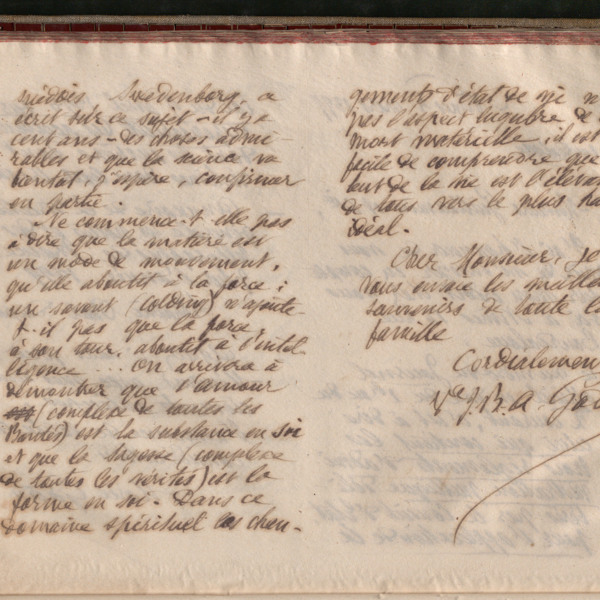 suédois Swedenborg, a
écrit sur ce sujet - il y a
cent ans - des choses admi-
rables et que la science va
bientôt, j'espère, confirmer
en partie.
Ne commence-t-elle pas
à dire que la matière est
un mode de mouvement,
qu'elle aboutit à la force ;
un savant (Colding) n'ajoute-
t-il pas que la force,
à son tour, aboutit à l'intel-
ligence ... On arrivera à
démontrer que l'amour
(complexe de toutes les
Bontés) est la substance en soi
et que la sagesse (complexe
de toutes les vérités) est la
forme en soi. Dans ce
domaine spirituel les chan-
gements d'état de vie n
pas l'aspect lugubre de
mort matérielle ; il est
facile de comprendre que
but de la vie est l'éléva
de tous vers le plus ha
idéal.
Cher Monsieur, je
vous envoie les meille
souvenirs de toute la
famille
Cordialemen
Ve J. B. A. God